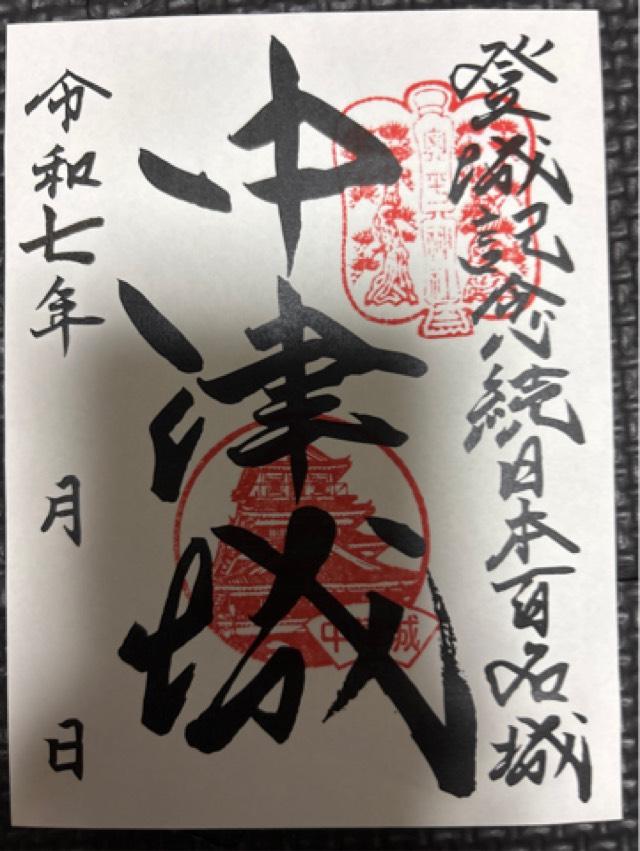 登城記念 続日本百名城
中津城
中津城
令和七年 月 日